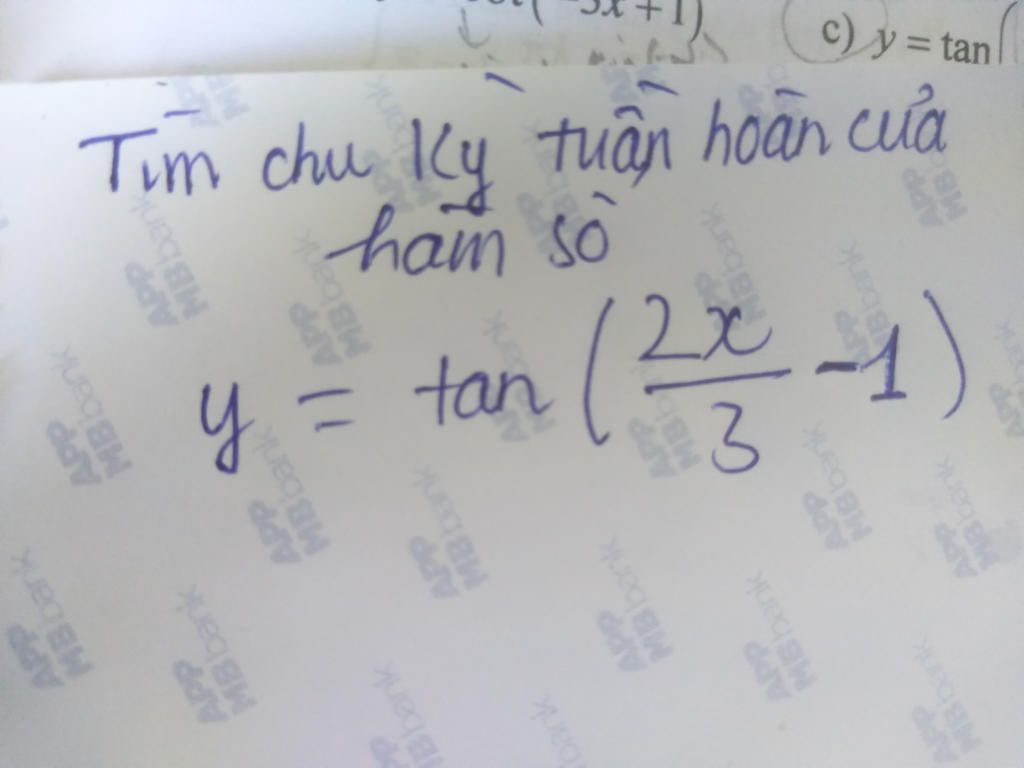 -3x+1)
c) y = tan(
Tìm chu kỳ tuần hoàn của
hàm số
y = tan(2x/3 - 1)
APP MBbank